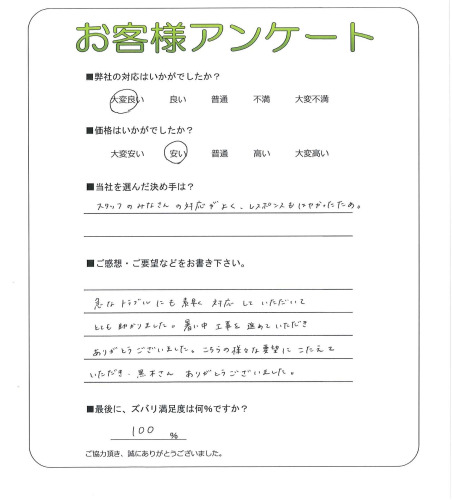 お客様アンケート
■弊社の対応はいかがでしたか？
大変良い 良い 普通 不満 大変不満
■価格はいかがでしたか？
大変安い 安い 普通 高い 大変高い
■当社を選んだ決め手は？
スタッフのみなさんの対応がよく、レスポンスもはやかったため。
■ご感想・ご要望などをお書き下さい。
急なトラブルにも素早く対応していただいて
とても助かりました。暑い中工事を進めていただき
ありがとうございました。こちらの様々な要望にこたえて
いただき、黒木さん ありがとうございました。
■最後に、ズバリ満足度は何%ですか？
100 %
ご協力頂き、誠にありがとうございました。